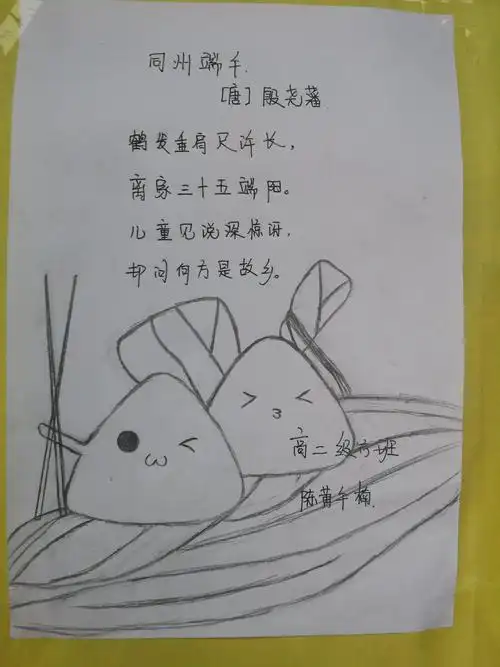 同州端午.
[唐] 殷尧藩
鹤发垂肩尺许长,
离家三十五端阳。
儿童见说深惊讶,
却问何方是故乡。
高二级六班
陈黄午楠